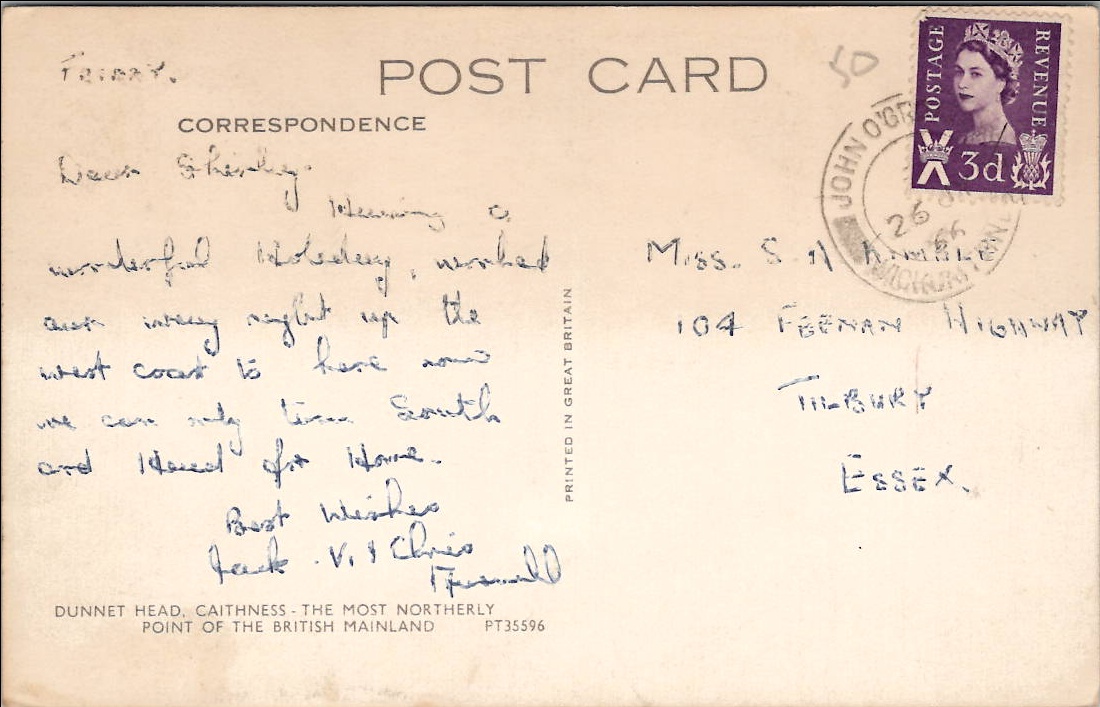 FRIDAY.
POST CARD
50
CORRESPONDENCE
Dear Shirley.
Having a
wonderful Holiday, worked
our way right up the
west coast to here now
we can only turn South
and Head for Home.
Best Wishes
Jack. V. & Chris
DUNNET HEAD, CAITHNESS - THE MOST NORTHERLY
POINT OF THE BRITISH MAINLAND PT35596
PRINTED IN GREAT BRITAIN
POSTAGE
REVENUE
3d
JOHN O'GR
26
66
MISS. S. KIMBLE
104 FEENAN HIGHWAY
TILBURY
ESSEX.